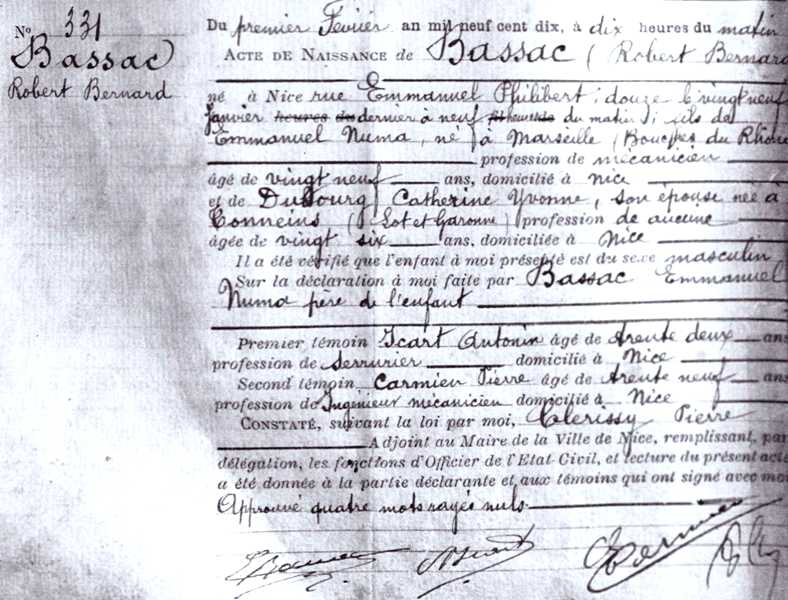 No 331
Bassac
Robert Bernard
Du premier Février an mil neuf cent dix, à dix heures du matin
ACTE DE NAISSANCE de Bassac (Robert Bernard
né à Nice rue Emmanuel Philibert, douze le vingt neuf
janvier heures du dernier à neuf heures du matin ; fils de
Emmanuel Numa, né à Marseille (Bouches du Rhône
profession de mécanicien
âgé de vingt neuf ans, domicilié à Nice
et de Dubourg Catherine Yvonne, son épouse née à
Tonneins (Lot et Garonne) profession de aucune
âgée de vingt six ans, domiciliée à Nice
Il a été vérifié que l'enfant à moi présenté est du sexe masculin
Sur la déclaration à moi faite par Bassac Emmanuel
Numa père de l'enfant
Premier témoin Icart Antonin âgé de trente deux ans
profession de serrurier domicilié à Nice
Second témoin Carmien Pierre âgé de trente neuf ans
profession de Ingénieur mécanicien domicilié à Nice
CONSTATÉ, suivant la loi par moi, Clerissy Pierre
Adjoint au Maire de la Ville de Nice, remplissant, par
délégation, les fonctions d'Officier de l'Etat-Civil, et lecture du présent acte
a été donnée à la partie déclarante et aux témoins qui ont signé avec moi
Approuvé quatre mots rayés nuls.